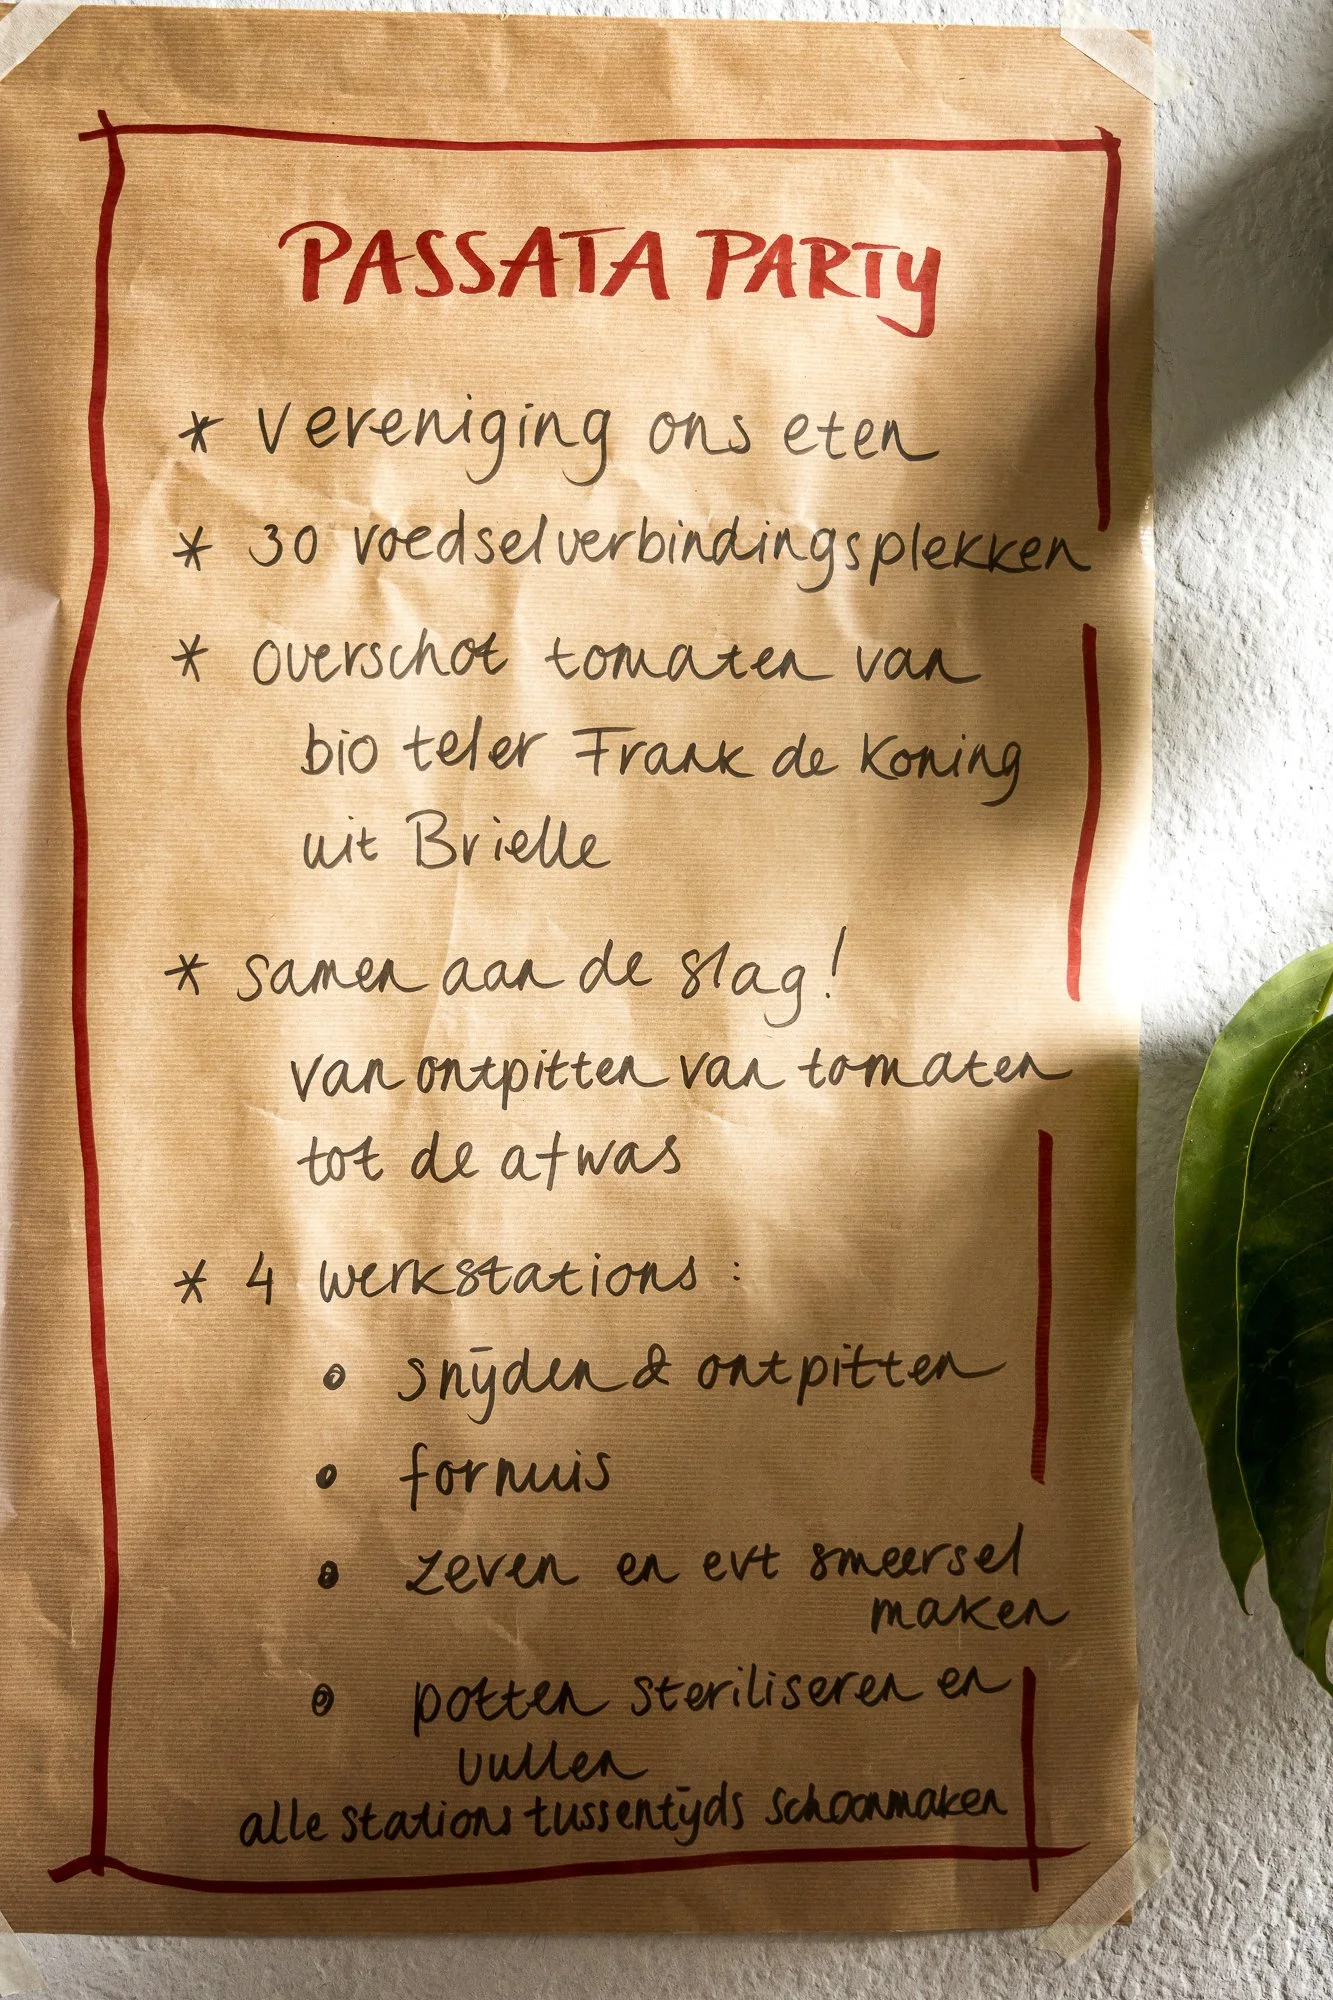 PASSATA PARTY
* Vereniging ons eten
* 30 voedselverbindingsplekken
* overschot tomaten van
bio teler Frank de Koning
uit Brielle
* samen aan de slag!
van ontpitten van tomaten
tot de afwas
* 4 werkstations:
o snijden & ontpitten
o fornuis
o zeven en evt smeersel
maken
o potten steriliseren en
vullen
alle stations tussentijds schoonmaken